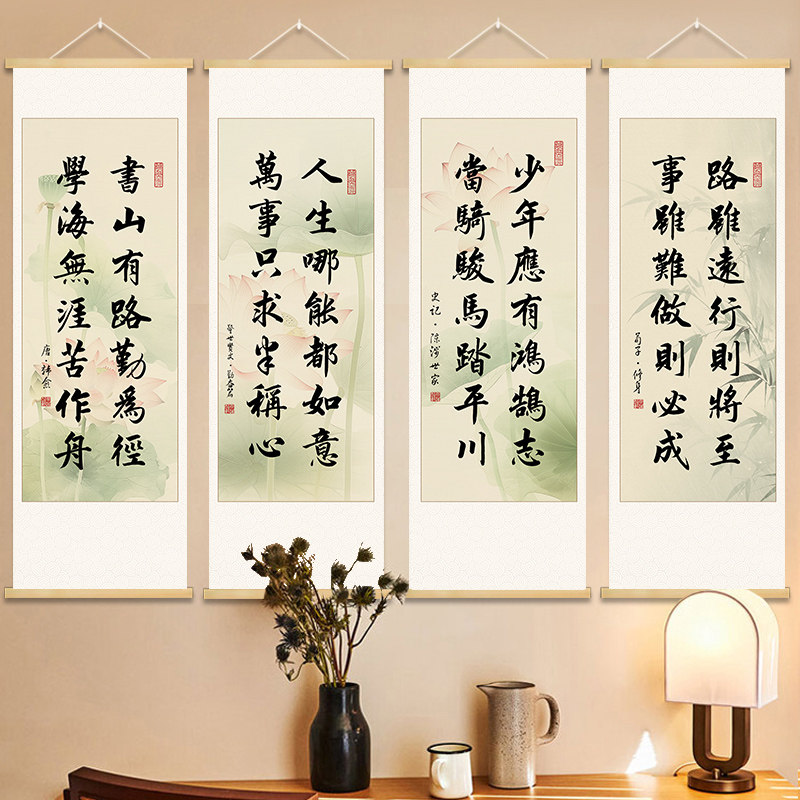 書山有路勤爲徑
學海無涯苦作舟
唐·韩愈
人生哪能都如意
萬事只求半稱心
警世賢文·
少年應有鴻鵠志
當騎駿馬踏平川
史记·陈涉世家
路雖遠行則將至
事雖難做則必成
荀子·修身